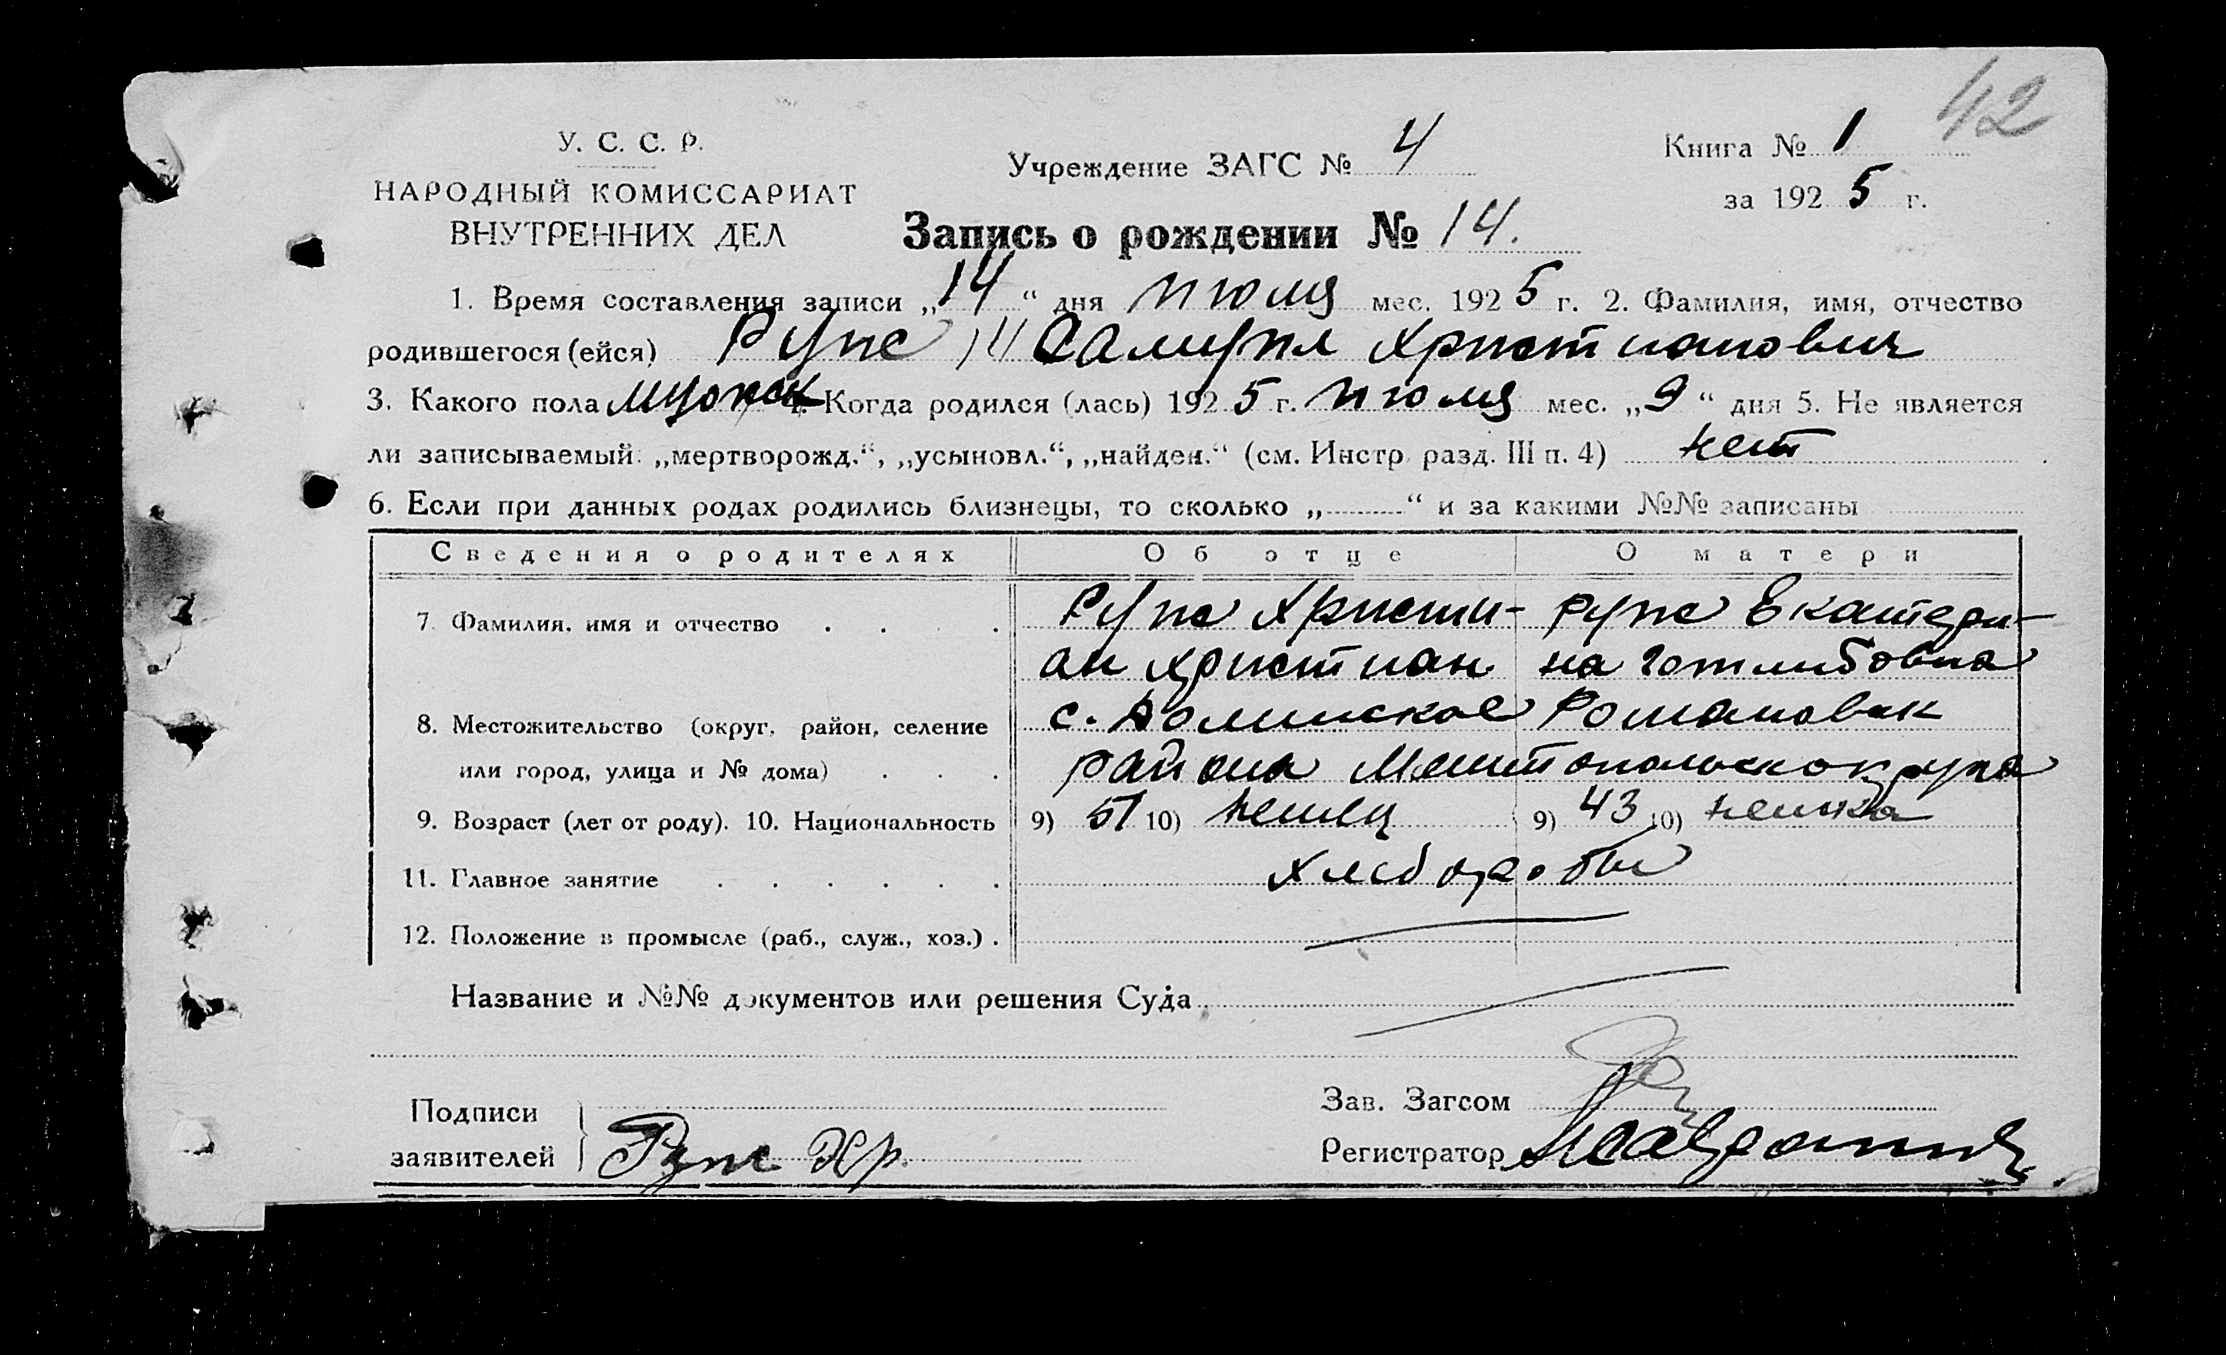 42
У. С. С. Р.
НАРОДНЫЙ КОМИССАРИАТ
ВНУТРЕННИХ ДЕЛ
Учреждение ЗАГС № 4
Книга № 1
за 1925 г.
Запись о рождении № 14.
1. Время составления записи „14“ дня июля мес. 1925 г. 2. Фамилия, имя, отчество
родившегося (ейся) Рупс Самуил Христианович
3. Какого пола мужск 4. Когда родился (лась) 1925 г. июля мес. „9“ дня 5. Не является
ли записываемый: „мертворожд.“, „усыновл.“, „найден.“ (см. Инстр. разд. III п. 4) нет
6. Если при данных родах родились близнецы, то сколько „ “ и за какими №№ записаны
Сведения о родителях Об отце О матери
7. Фамилия, имя и отчество Рупс Христи- Рупс Екатери-
ан Христиан на Готлибовна
8. Местожительство (округ, район, селение с. Романовск
или город, улица и № дома) района Мелитопольск округа
9. Возраст (лет от роду). 10. Национальность 9) 51 10) немец 9) 43 10) немка
11. Главное занятие хлеборобы
12. Положение в промысле (раб., служ., хоз.)
Название и №№ документов или решения Суда
Подписи
заявителей Рупс Хр.
Зав. Загсом
Регистратор